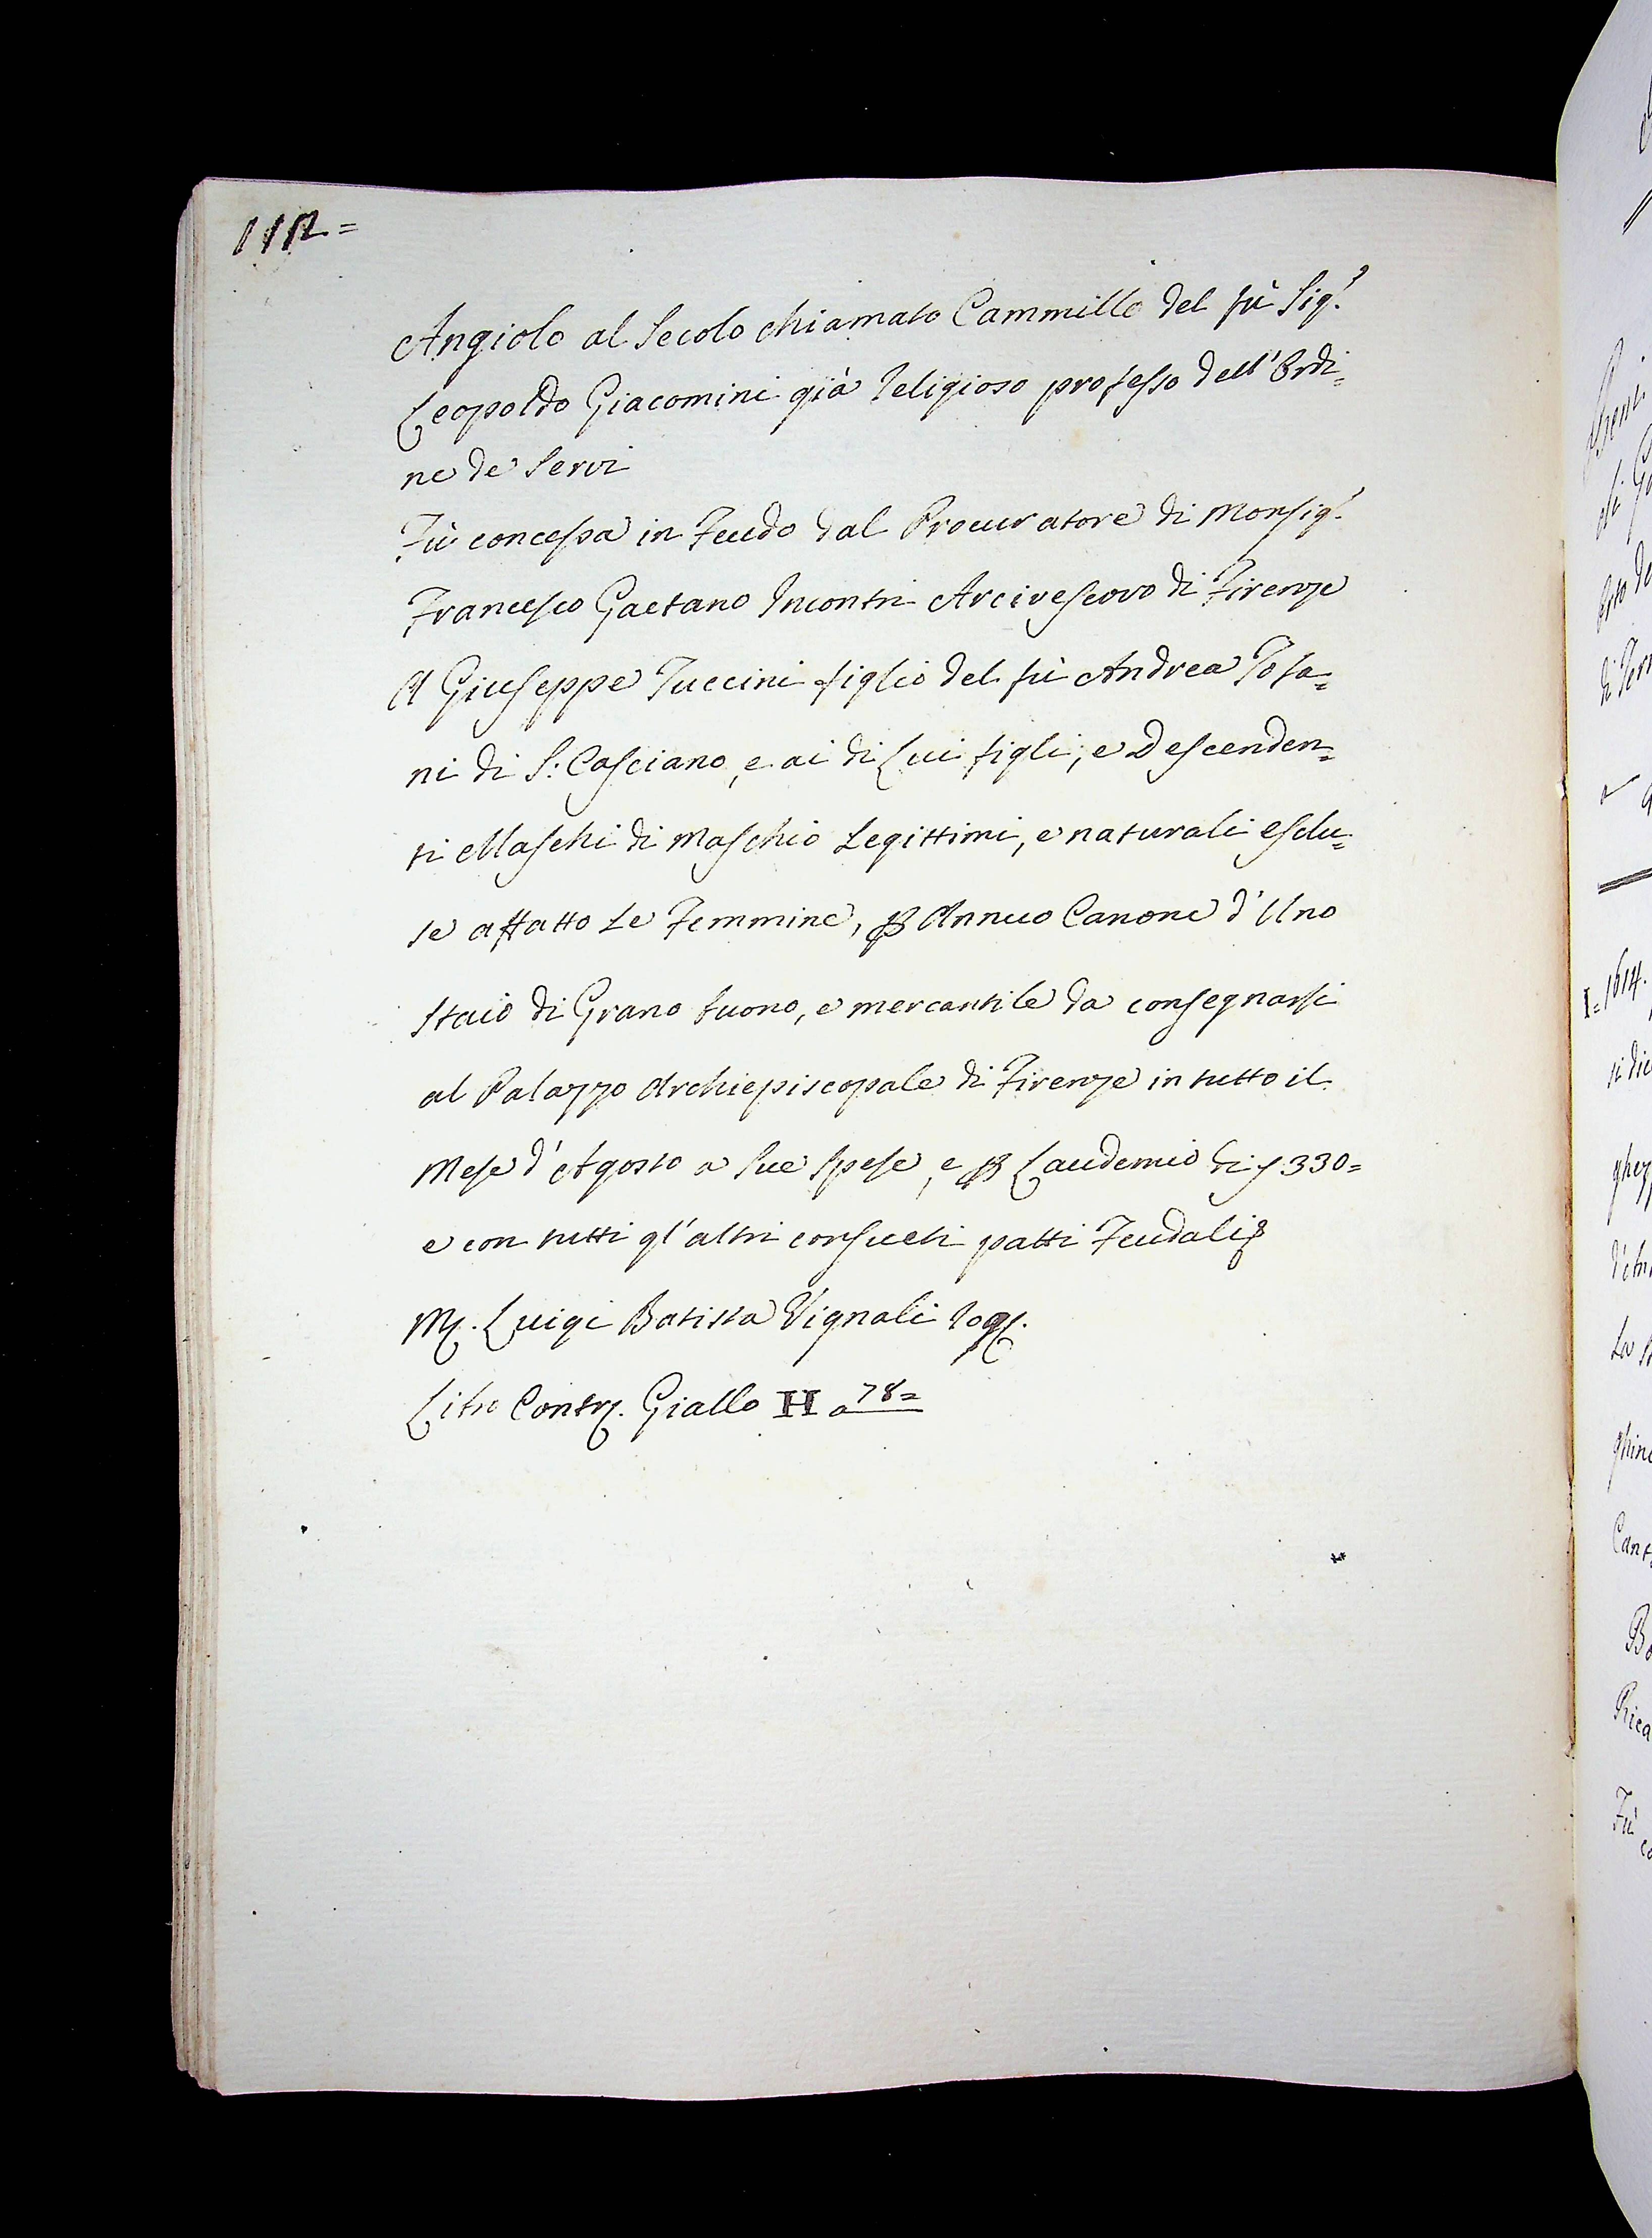 112=
Angiolo al Secolo chiamato Cammillo del fù Sig.r
Leopoldo Giacomini già Religioso professo dell'Ordi=
ne de Servi
Fù concessa in Feudo dal Procuratore di Monsig.r
Francesco Gaetano Incontri Arcivescovo di Firenze
A Giuseppe Tuccini figlio del fù Andrea Tosa=
ni di S: Casciano, e ai di Lui figli, e Descenden=
ti Maschi di Maschio Legittimi, e naturali esclu=
se affatto Le Femmine, p Annuo Canone d'Uno
Staio di Grano buono, e mercantile da consegnarsi
al Palazzo Archiepiscopale di Firenze in tutto il
Mese d'Agosto a Sue Spese, e p Laudemio di 330=
e con tutti gl'altri consueti patti Feudali
M. Luigi Batista Vignali Rog.
Libr Contr. Giallo H a 78=
I=1614.